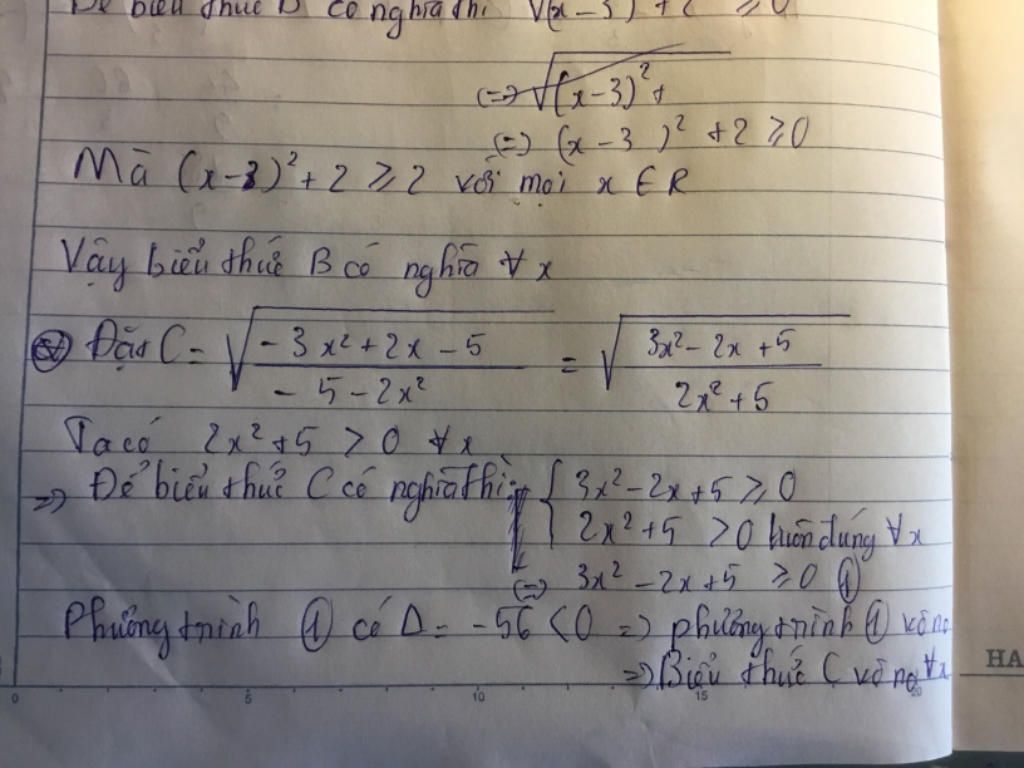 Để biểu thức B có nghĩa thì √(x-3)²+2 ≥ 0
(=) √(x-3)²+
(=) (x-3)²+2 ≥ 0
Mà (x-3)²+2 ≥ 2 với mọi x ∈ R
Vậy biểu thức B có nghĩa ∀x
Đặt C = √((-3x²+2x-5)/(-5-2x²)) = √((3x²-2x+5)/(2x²+5))
Ta có 2x²+5 > 0 ∀x
=> Để biểu thức C có nghĩa thì: { 3x²-2x+5 ≥ 0
2x²+5 > 0 luôn đúng ∀x
(=) 3x²-2x+5 ≥ 0 ①
Phương trình ① có Δ = -56 < 0 => phương trình ① vô no
=> Biểu thức C vô no ∀x
0 5 10 15 20
HA